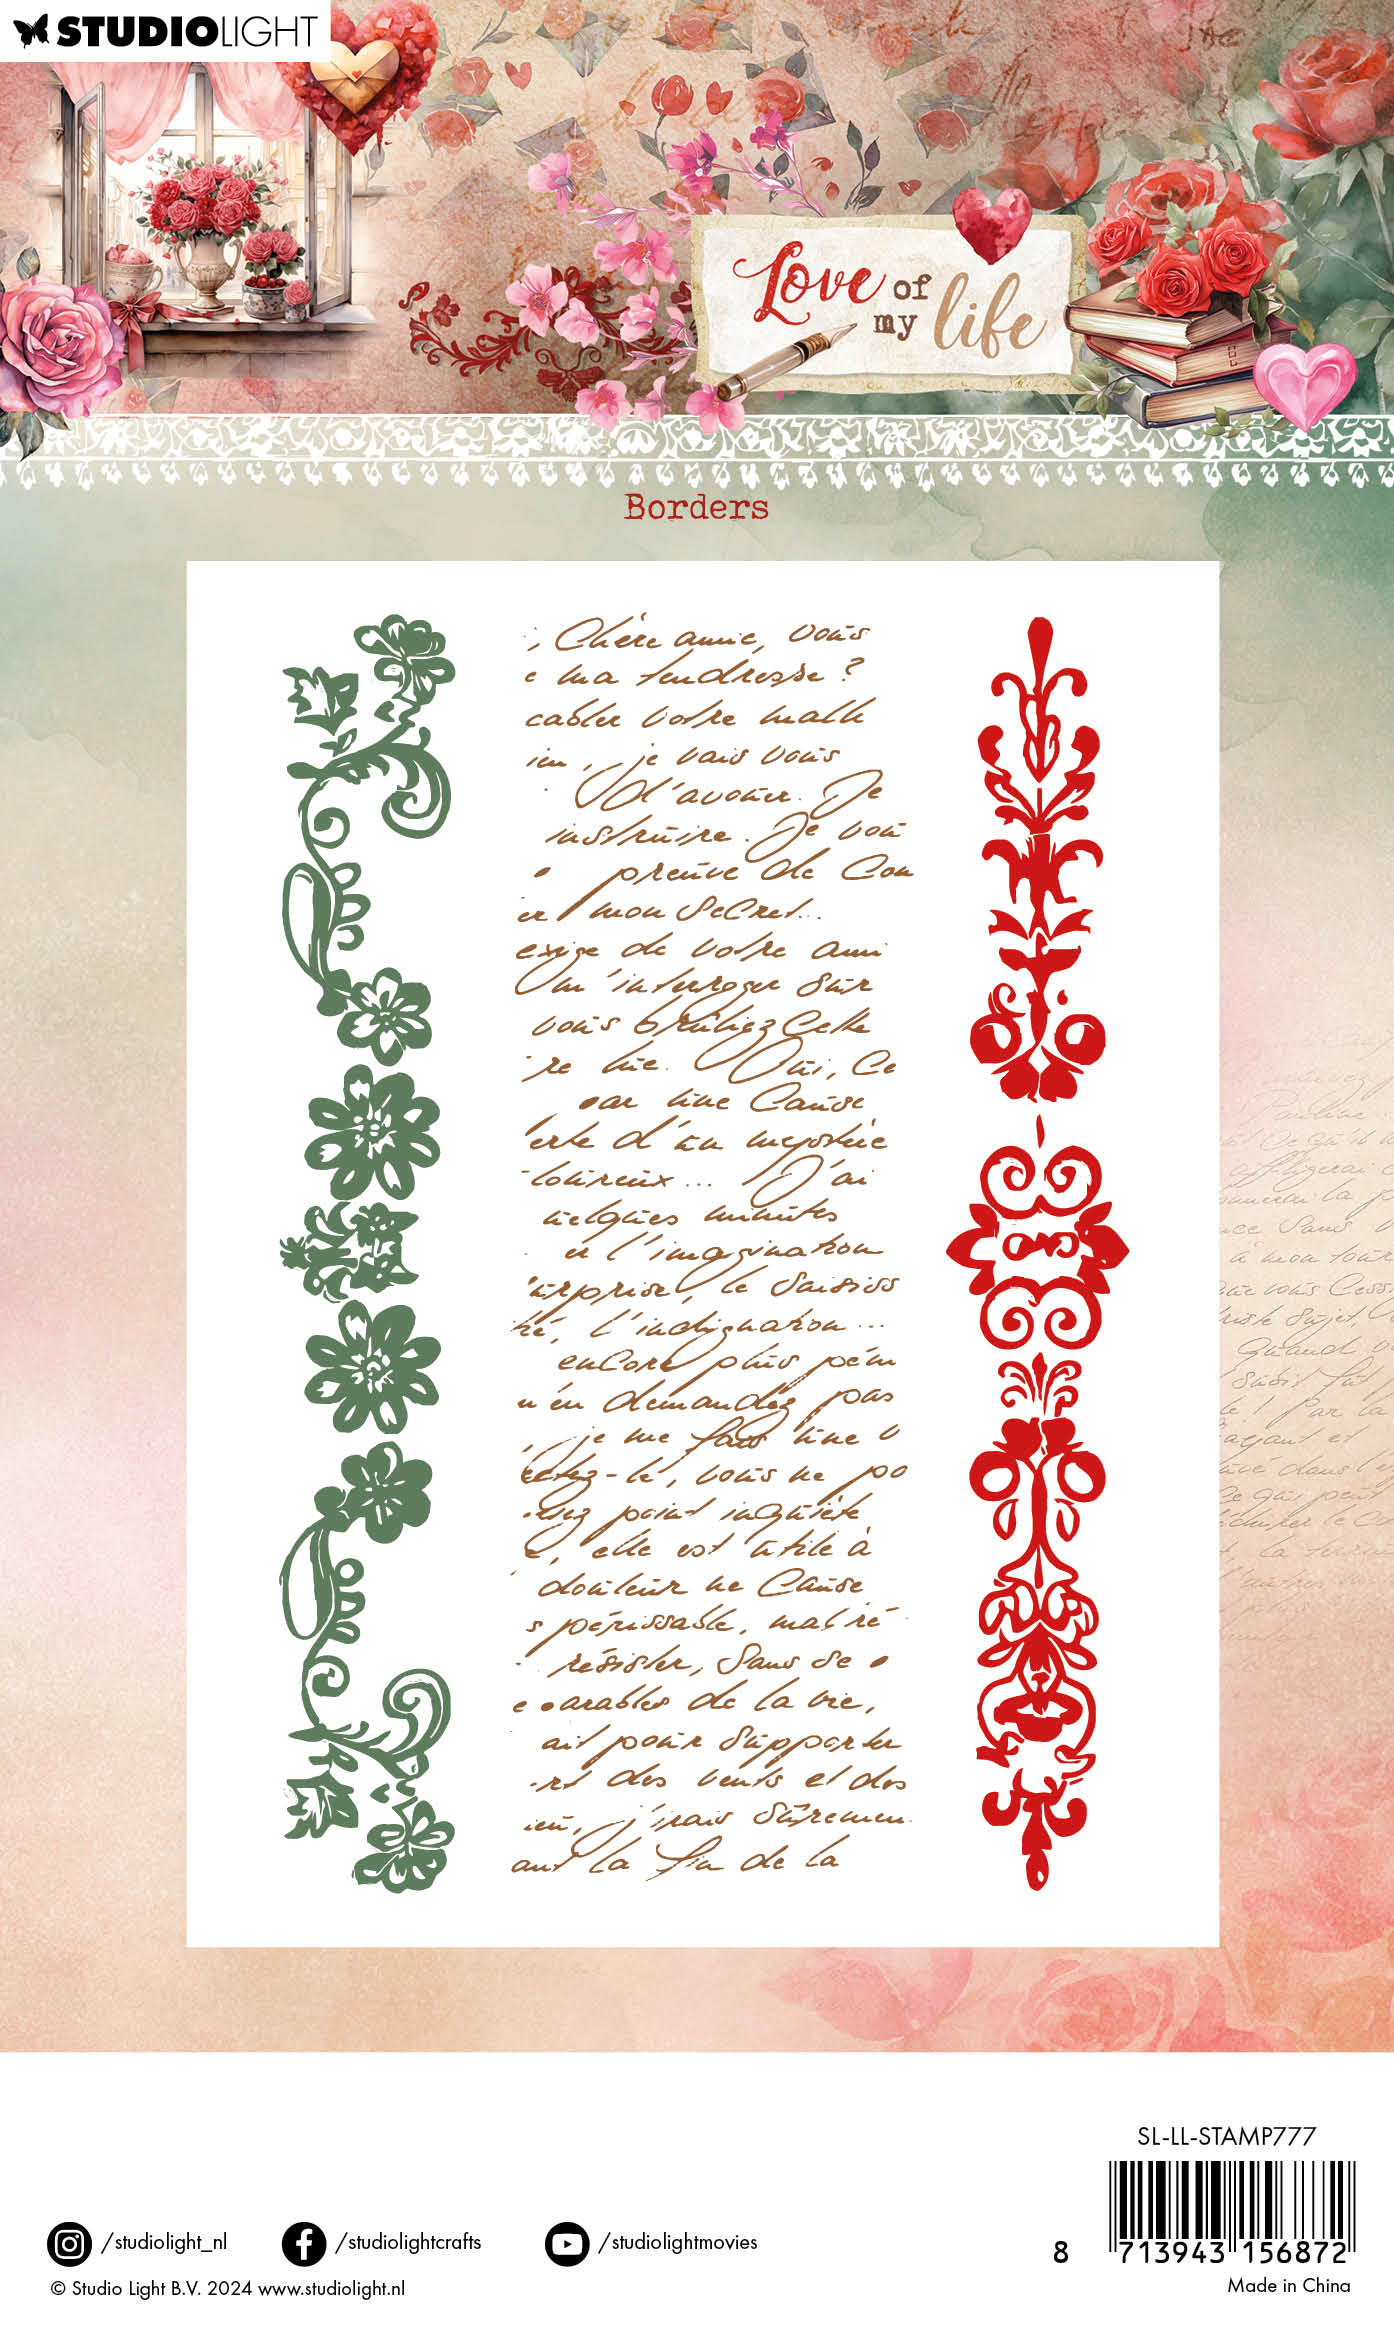 STUDIOLIGHT
Love of
my life
Borders
, Chère amie, vous
e ma tendresse ?
votre malh
, je vais vous
d'avouer. Je
instruire. Je vou
preuve de con
er mon secret...
exige de votre ami
m'interroger sur
vous brûliez cette
re vie. Oui, ce
par une cause
erte d'un
... J'ai
uelques minutes
er l'imagination
urprise, le saisiss
té, l'indignation...
encore plus pén
n'en demandez pas
, je me fais une v
-le, vous ne po
rez point inquiète
e, elle est utile à
douleur ne cause
s périssable, mal ré
résister, sans se
e parables de la vie,
ait pour supporter
des vents et des
ieu, j'irais sûremen
ant la fin de la
SL-LL-STAMP777
8 713943 156872
Made in China
/studiolight_nl
/studiolightcrafts
/studiolightmovies
© Studio Light B.V. 2024 www.studiolight.nl